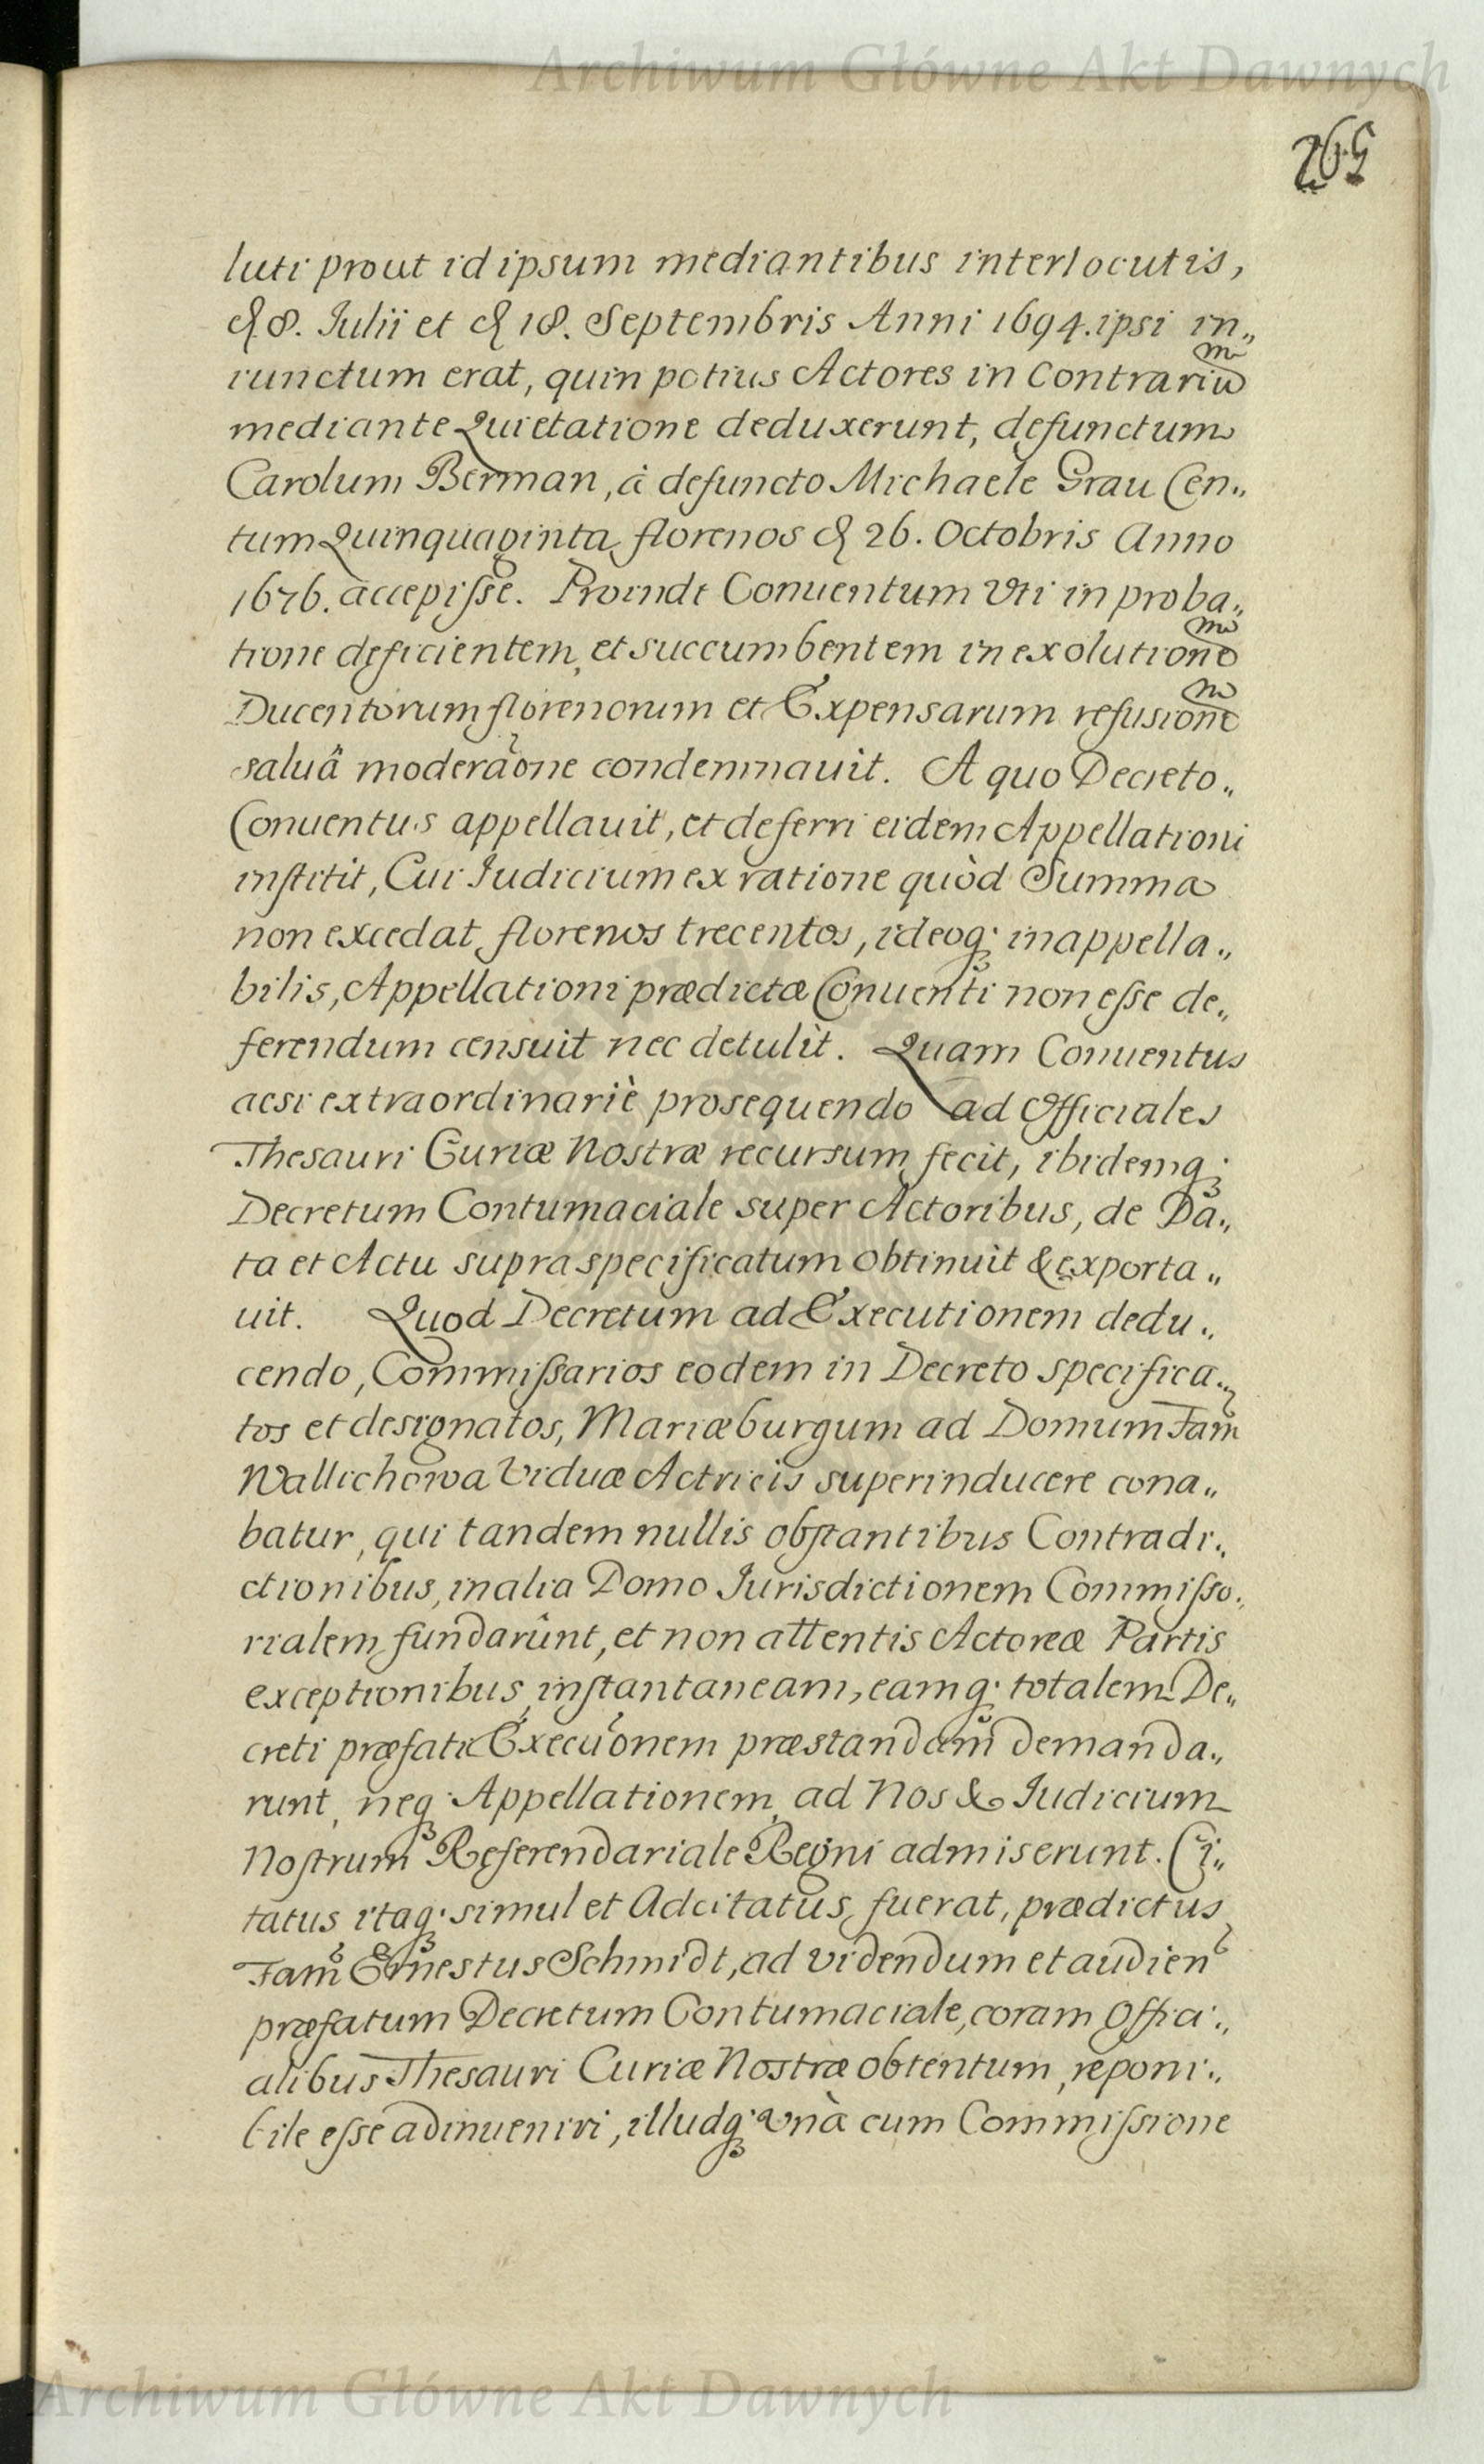 Archiwum Główne Akt Dawnych
265
luti prout id ipsum mediantibus interlocutis,
8. Julii et 18. Septembris Anni 1694. ipsi in„
iunctum erat, quin potius Actores in Contrarium
mediante Quietatione deduxerunt, defunctum
Carolum Berman, à defuncto Michaele Grau Cen„
tum Quinquaginta florenos 26. Octobris Anno
1676. accepiſse. Proinde Conuentum Vti in proba„
tione deficientem, et succumbentem in exolutionem
Ducentorum florenorum et Expensarum refusionem
saluâ moderaone condemnauit. A quo Decreto„
Conuentus appellauit, et deferri eidem Appellationi
inſtitit, Cui Judicium ex ratione quòd Summa
non excedat florenos trecentos, ideoq; inappella„
bilis, Appellationi prædictæ Conuenti non eſse de„
ferendum censuit nec detulit. Quam Conuentus
acsi extraordinariè prosequendo ad Officiales
Thesauri Curiæ Nostræ recursum fecit, ibidemq;
Decretum Contumaciale super Actoribus, de Da„
ta et Actu supra specificatum obtinuit & exporta„
uit. Quod Decretum ad Executionem dedu„
cendo, Commiſsarios eodem in Decreto specifica„
tos et designatos, Mariæburgum ad Domum Fam
Wallichowa Viduæ Actricis superinducere cona„
batur, qui tandem nullis obſtantibus Contradi„
ctionibus, in alia Domo Jurisdictionem Commiſso„
rialem fundarunt, et non attentis Actoreæ Partis
exceptionibus, inſtantaneam, eamq; totalem De„
creti præfati Execuonem præstandam demanda„
runt, neq; Appellationem, ad Nos & Judicium
Noſtrum Referendariale Regni admiserunt. Ci„
tatus itaq; simul et Adcitatus fuerat, prædictus
Fam Ernestus Schmidt, ad videndum et audien
præfatum Decretum Contumaciale, coram Offici„
alibus Thesauri Curiæ Nostræ obtentum, reponi„
bile eſse adinueniri, illudq; Vnà cum Commiſsione
Archiwum Główne Akt Dawnych